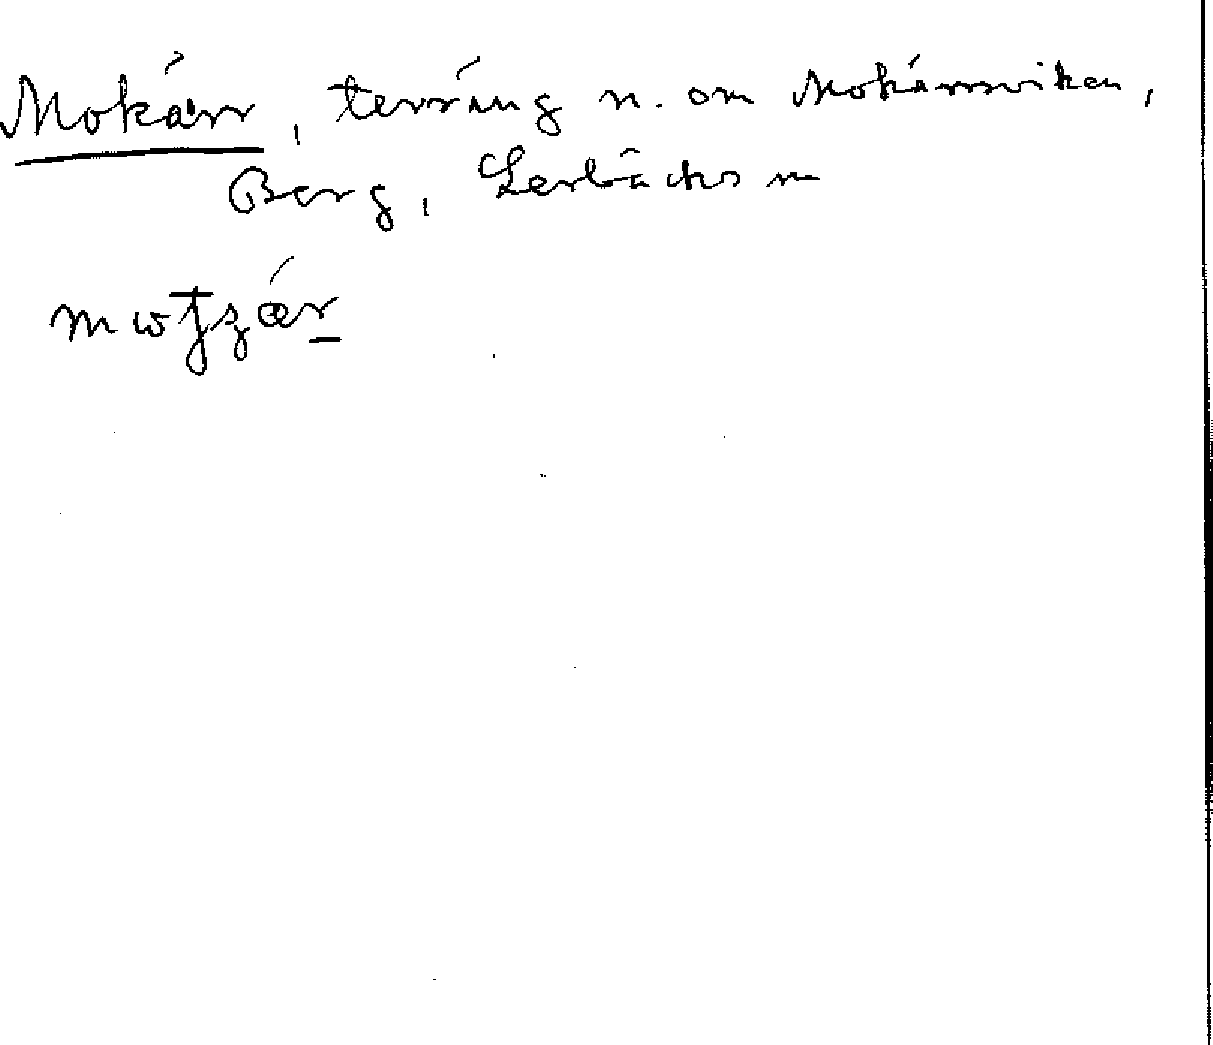 Mokärr, terräng n. om Mokärrsviken,
Berg, Lerbäcks sn